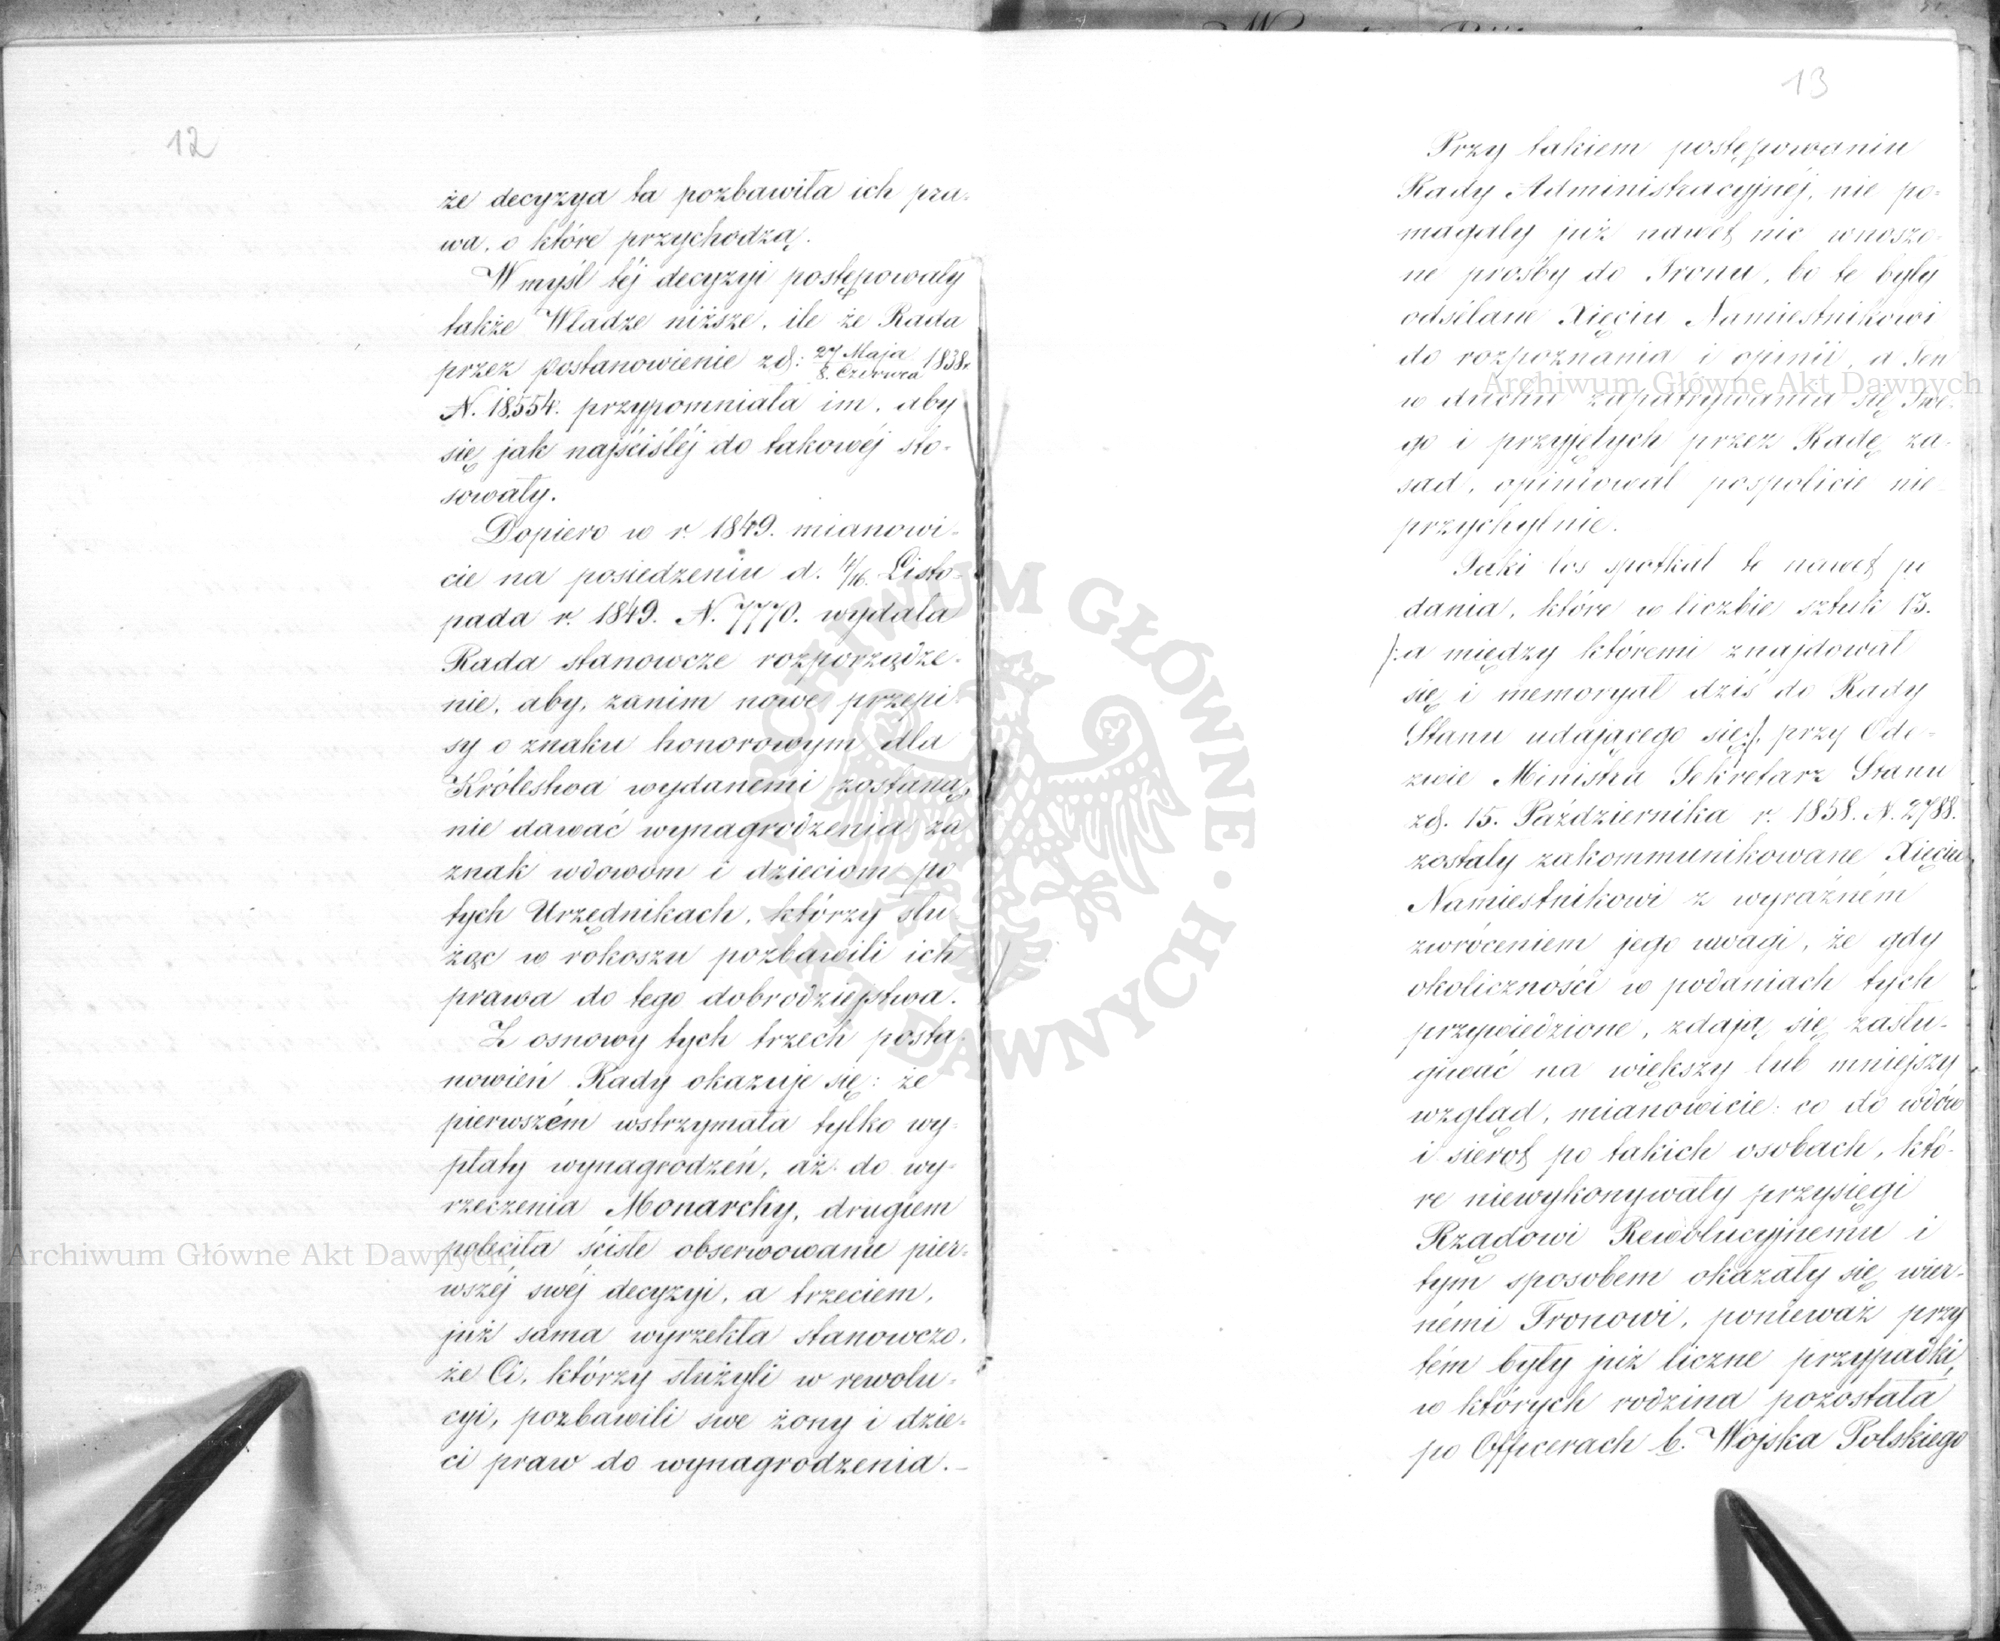 12
że decyzya ta pozbawiła ich pra-
wa, o które przychodzą.
W myśl téj decyzyi postępowały
także Władze niższe, ile że Rada
przez postanowienie zd: 27 Maja / 8. Czerwca 1838.
N. 18,554. przypomniała im, aby
się jak najściśléj do takowéj sto-
sowały.
Dopiero w r. 1849. mianowi-
cie na posiedzeniu d. 4/16. Listo-
pada r. 1849. N. 7770. wydała
Rada stanowcze rozporządze-
nie, aby, zanim nowe przepi-
sy o znaku honorowym dla
Królestwa wydanemi zostaną,
nie dawać wynagrodzenia za
znak wdowom i dzieciom po
tych Urzędnikach, którzy słu-
żąc w rokoszu pozbawili ich
prawa do tego dobrodziejstwa.
Z osnowy tych trzech posta-
nowień Rady okazuje się: że
pierwszém wstrzymała tylko wy-
płaty wynagrodzeń, aż do wy-
rzeczenia Monarchy, drugiem
poleciła ściśle obserwowanie pier-
wszéj swéj decyzyi, a trzeciem,
już sama wyrzekła stanowczo,
że Ci, którzy służyli w rewolu-
cyi, pozbawili swe żony i dzie-
ci praw do wynagrodzenia.—
13
Przy takiem postępowaniu
Rady Administracyjnéj, nie po-
magały już nawet nic wnoszo-
ne prośby do Tronu, bo te były
odsélane Xięciu Namiestnikowi
do rozpoznania i opinii, a Ten
w duchu zapatrywania się Swe-
go i przyjętych przez Radę za-
sad, opiniował pospolicie nie-
przychylnie.
Taki los spotkał te nawet po
dania, które w liczbie sztuk 13.
/:a między któremi znajdował
się i memoryał dziś do Rady
Stanu udającego się:/. przy Ode-
zwie Ministra Sekretarz Stanu
zd. 15. Października r. 1858. N. 2788.
zostały zakommunikowane Xięciu
Namiestnikowi z wyraźnem
zwróceniem jego uwagi, że gdy
okoliczności w podaniach tych
przywiedzione, zdają się zasłu-
giwać na większy lub mniejszy
wzgląd, mianowicie: co do wdów
i sierot po takich osobach, któ-
re niewykonywały przysięgi
Rządowi Rewolucyjnemu i
tym sposobem okazały się wier-
némi Tronowi, ponieważ przy
tém były już liczne przypadki,
w których rodzina pozostała
po Officerach b. Wojska Polskiego
Archiwum Główne Akt Dawnych
Archiwum Główne Akt Dawnych
ARCHIWUM GŁÓWNE AKT DAWNYCH